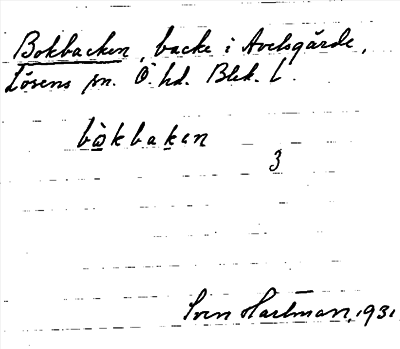 Bokbacken, backe i Avelsgärde,
Lösens sn. Ö. hd. Blek. L.
bòkbaken
3
Sven Hartman, 1931